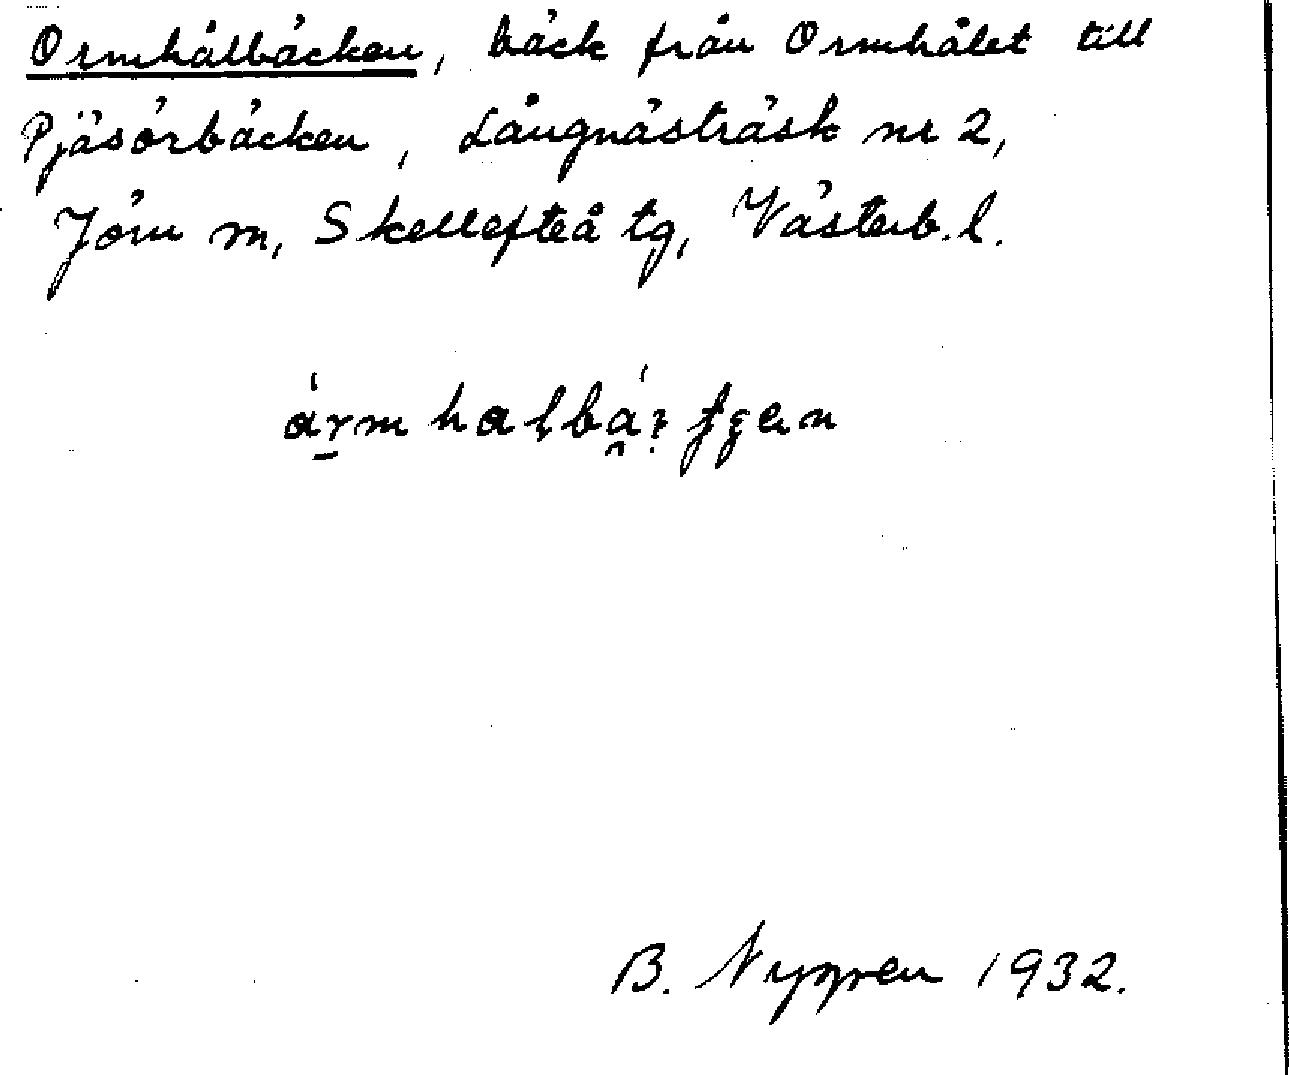 Ormhålbäcken, bäck från Ormhålet till
Pjäsörbäcken, Långnästräsk nr 2,
Jörn sn, Skellefteå tg, Västerb. l.
B. Nygren 1932.